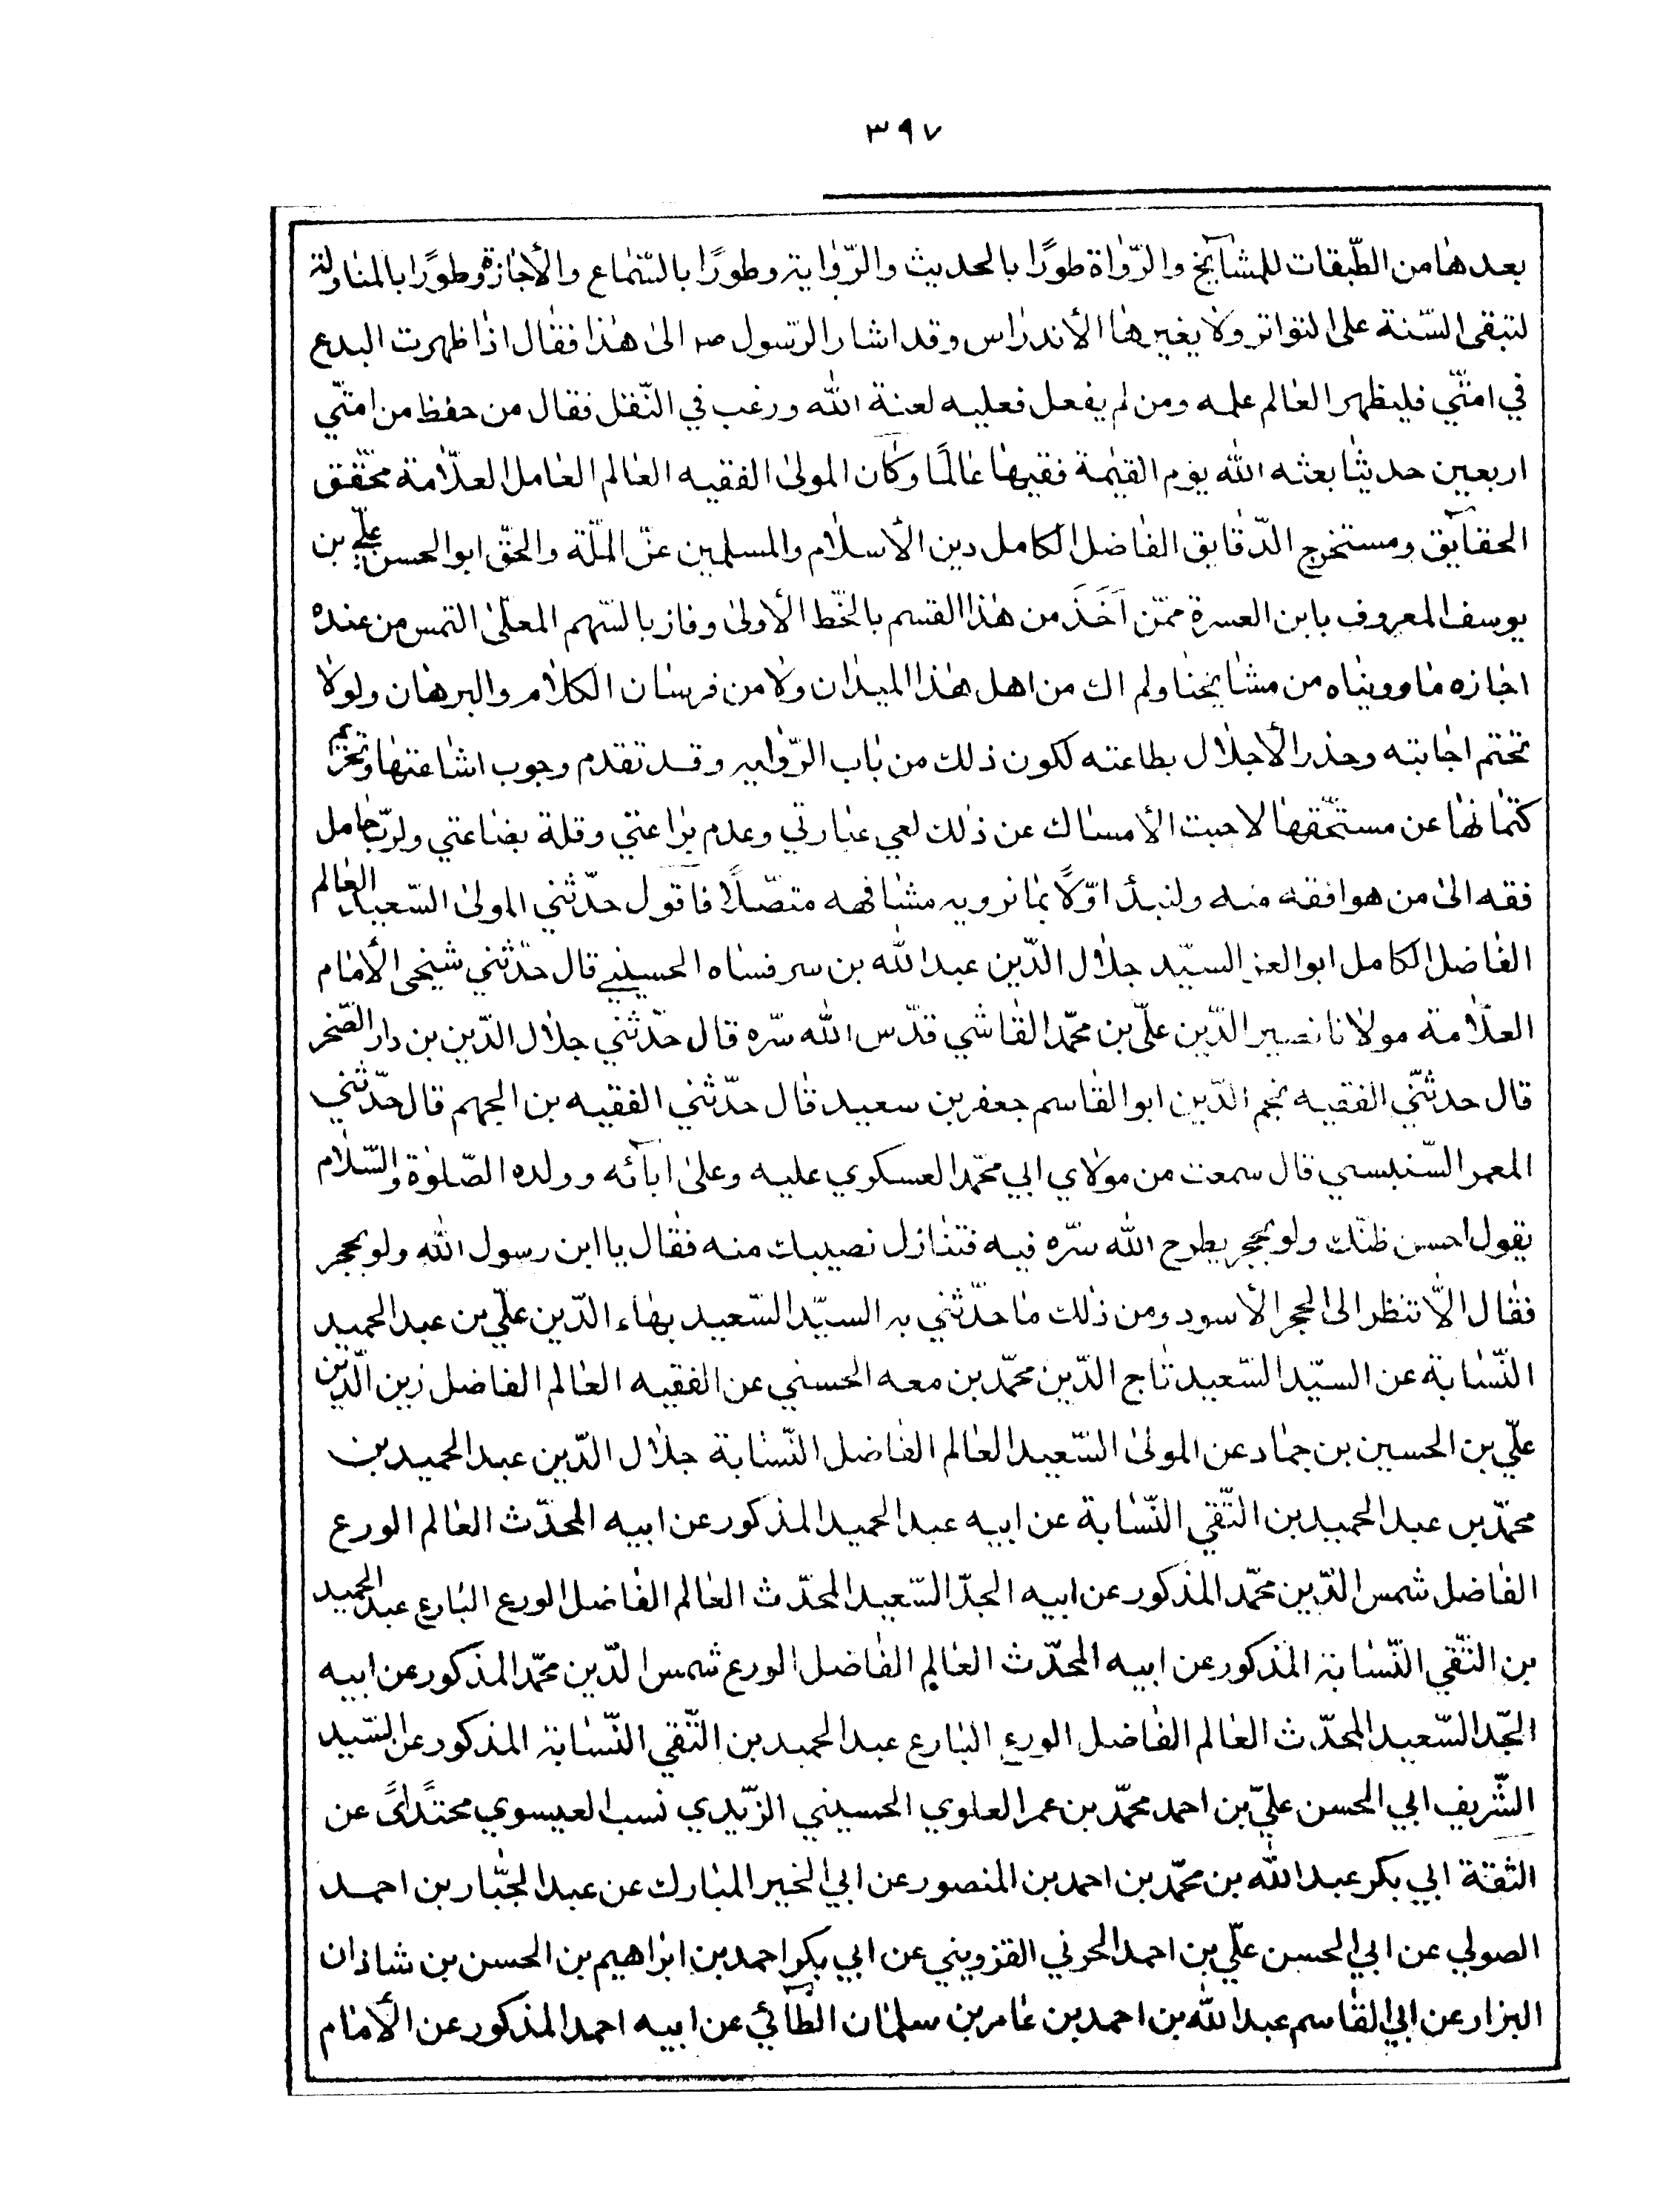 ٣٩٧
بعدها من الطّبقات للمشآيخ والرّواة طورًا بالحديث والرّواية وطورًا بالسّماع والأجازة وطورًا بالمناولة
لتبقى السّنة على التواتر ولا يغيرها الأندراس وقد اشار الرّسول صم الى هذا فقال اذا ظهرت البدع
في امتّي فليظهر العالم علمه ومن لم يفعل فعليه لعنة الله ورغب في النّقل فقال من حفظ من امتّي
اربعين حديثا بعثه الله يوم القيمة فقيها عالمًا وكان المولى الفقيه العالم العامل العلّامة محقّق
الحقآيق ومستخرج الدّقايق الفاضل الكامل دين الأسلام والمسلمين عزّ الملّة والحقّ ابوالحسن علي بن
يوسف المعروف بابن العسرة ممّن اَخَذَ من هذا القسم بالخّط الأولى وفاز بالسّهم المعلّى التمس من عنده
اجازه ما رويناه من مشايخنا ولم اك من اهل هذا الميدان ولا من فرسان الكلام والبرهان ولولا
تختم اجابته وحذر الأجلال بطاعته لكون ذلك من باب الرّوايه وقد تقدم وجوب اشاعتها وتحريم
كتمانها عن مستحّقها لاحببت الأمساك عن ذلك لعي عبارتي وعدم براعتي وقلة بضاعتي ولربّ حامل
فقه الى من هو افقه منه ولنبدأ اوّلًا بما نرويه مشافهه متصّلًا فاقول حدّثني المولى السّعيد العالم
الفاضل الكامل ابوالعز السيّد جلال الدّين عبدالله بن سرفساه الحسيني قال حدّثني شيخي الأمام
العلّامة مولانا نصير الدّين علّي بن محمّد القاشي قدّس الله سّره قال حدّثني جلال الدّين بن دار الصّخر
قال حدثّني الفقيه نجم الدّين ابوالقاسم جعفر بن سعيد قال حدّثني الفقيه بن الجهم قال حدّثني
المعمر السّنبسي قال سمعت من مولاي ابي محمّد العسكري عليه وعلى ابآئه وولده الصّلوة والسّلام
يقول احسن ظنّك ولو بحجر يطرح الله سّره فيه فتنازل نصيبك منه فقال يا ابن رسول الله ولو بحجر
فقال الّا تنظر الى الحجر الأسود ومن ذلك ما حدّثني به السيّد السّعيد بهاء الدّين علّي بن عبدالحميد
النّسابة عن السيّد السّعيد تاج الدّين محمّد بن معه الحسني عن الفقيه العالم الفاضل زين الدّين
علّي بن الحسين بن حماد عن المولى السّعيد العالم الفاضل النّسابة جلال الدّين عبدالحميد بن
محمّد بن عبدالحميد بن التّقي النّسابة عن ابيه عبدالحميد المذكور عن ابيه المحدّث العالم الورع
الفاضل شمس الدّين محمّد المذكور عن ابيه الجدّ السّعيد المحدّث العالم الفاضل الورع البارع عبدالحميد
بن التّقي النّسابة المذكور عن ابيه المحدّث العالم الفاضل الورع شمس الدّين محمّد المذكور عن ابيه
الجدّ السّعيد المحدّث العالم الفاضل الورع البارع عبدالحميد بن التّقي النّسابة المذكور عن السّيد
الشّريف ابي الحسن عليّ بن احمد محمّد بن عمر العلوي الحسيني الزّيدي نسبا العيسوي محتدًا عن
الثقة ابي بكر عبدالله بن محمّد بن احمد بن المنصور عن ابي الخير المبارك عن عبدالجبّار بن احمد
الصولي عن ابي الحسن علّي بن احمد الحرني القزويني عن ابي بكر احمد بن ابراهيم بن الحسن بن شاذان
البزار عن ابي القاسم عبدالله بن احمد بن عامر بن سلمان الطّآئي عن ابيه احمد المذكور عن الأمام